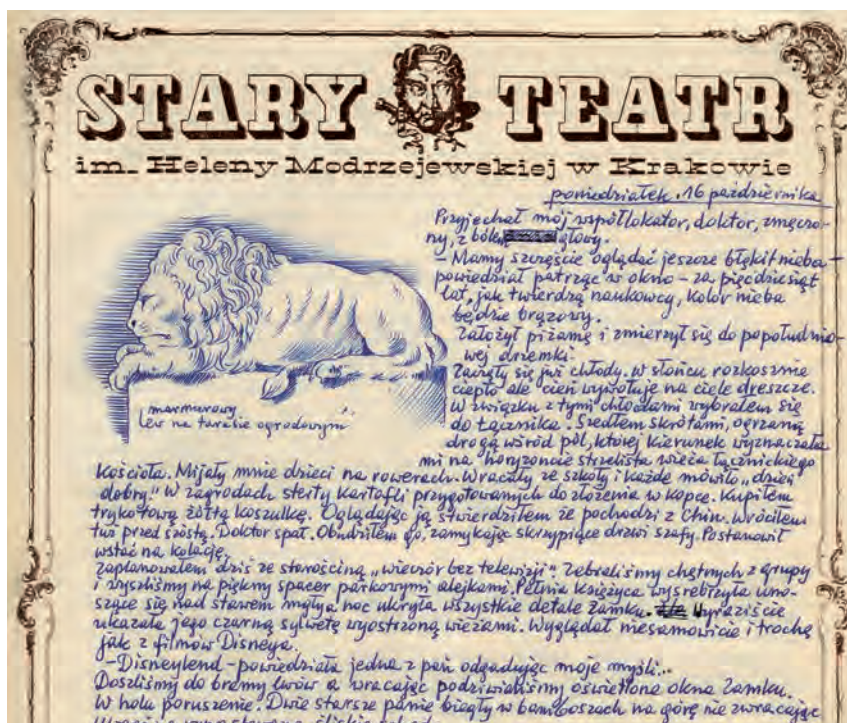 STARY TEATR
im. Heleny Modrzejewskiej w Krakowie
poniedziałek. 16 października
Przyjechał mój współlokator, doktor, zmęczo-
ny, z bólem głowy.
– Mamy szczęście oglądać jeszcze błękit nieba –
powiedział patrząc w okno – za pięćdziesiąt
lat, jak twierdzą naukowcy, kolor nieba
będzie brązowy.
Założył piżamę i zmierzył się do popołudnio-
wej drzemki.
Zaczęły się już chłody. w słońcu rozkosznie
ciepło ale cień wywołuje na ciele dreszcze.
W związku z tymi chłodami wybrałem się
do Łącznika. Szedłem skrótami,
drogą wśród pól, której kierunek wyznaczała
mi na horyzoncie strzelista wieża łącznickiego
marmurowy
lew na tarasie ogrodowym
kościoła. Mijały mnie dzieci na rowerach. Wracały ze szkoły i każde mówiło „dzień
dobry." W zagrodach sterty kartofli przygotowanych do złożenia w kopce. Kupiłem
trykotową żółtą koszulkę. Oglądając ją stwierdziłem że pochodzi z Chin. Wróciłem
tuż przed szóstą. Doktor spał. Obudziłem go, zamykając skrzypiące drzwi szafy. Postanowił
wstać na kolację.
Zaplanowałem dziś ze starościną „wieczór bez telewizji". Zebraliśmy chętnych z grupy
i wyszliśmy na piękny spacer parkowymi alejkami. Pełnia księżyca wysrebrzyła uno-
szące się nad stawem mgły a noc ukryła wszystkie detale zamku. Wyraziście
ukazała jego czarną sylwetę wyostrzoną wieżami. Wyglądał niesamowicie i trochę
jak z filmów Disneya.
– Disneylend – powiedziała jedna z pań odgadując moje myśli...
Doszliśmy do bramy lwów a wracając podziwialiśmy oświetlone okna Zamku.
W holu poruszenie. Dwie starsze panie biegły w bamboszach na górę nie zwracając